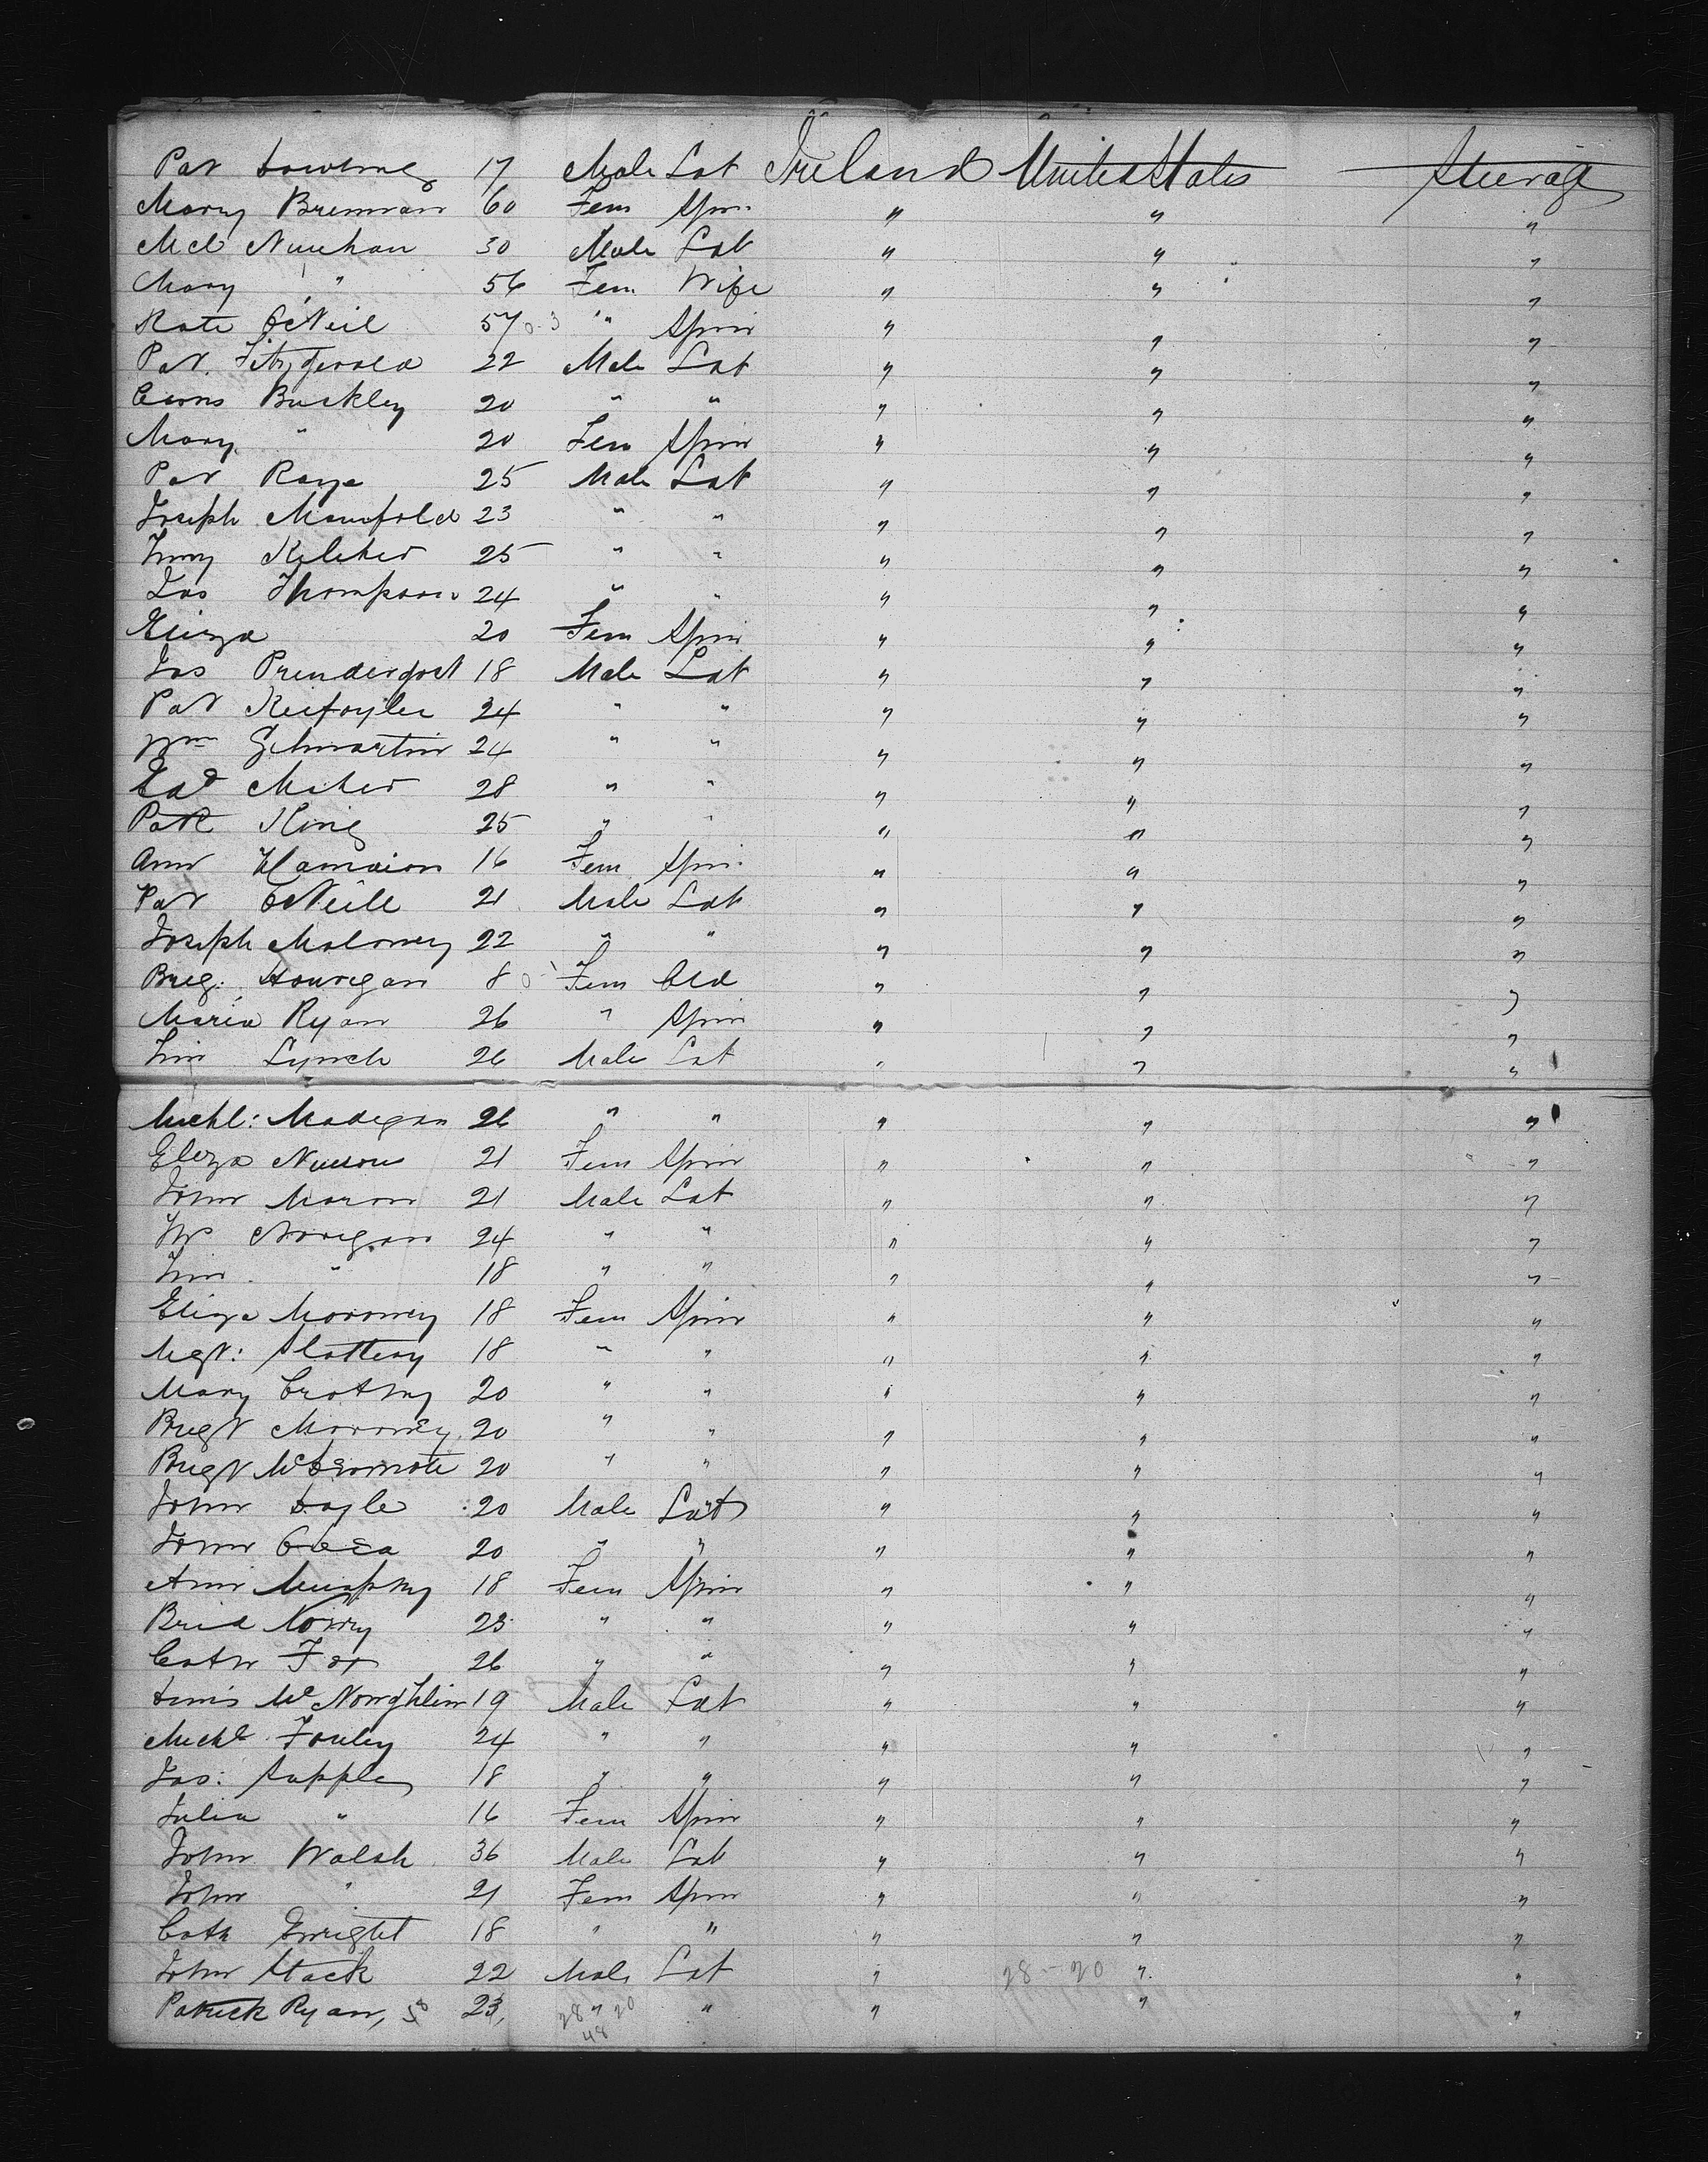 Pat Downey 17 Male Lab Ireland United States Steerage
Mary Brennan 60 Fem Spin " " "
Ml 30 Male Lab " " "
Mary " 56 Fem Wife " " "
Kate O'Neil 57 " Spin " " "
Pat. Fitzgerald 22 Male Lab " " "
Corns Buckley 20 " " " " "
Mary " 20 Fem Spin " " "
Pat 25 Male Lab " " "
Joseph Manifold 23 " " " " "
Timy Keleher 25 " " " " "
Jas Thompson 24 " " " " "
Eliza 20 Fem Spin " " "
Jas Prendergast 18 Male Lab " " "
Pat 24 " " " " "
Wm Gilmartin 24 " " " " "
Ed Maher 28 " " " " "
Patk King 25 " " " " "
Ann 16 Fem Spin " " "
Pat O'Neill 21 Male Lab " " "
Joseph Maloney 22 " " " " "
Brig: Hourigan 8 Fem Cld " " "
Maria Ryan 26 " Spin " " "
Tim Lynch 26 Male Lab " " "
Michl: Madigan 26 " " " " "
Eliza 21 Fem Spin " " "
John 21 Male Lab " " "
24 " " " " "
Tim " 18 " " " " "
Eliza Moroney 18 Fem Spin " " "
Mgt: Slattery 18 " " " " "
Mary Crothy 20 " " " " "
Brigt Moroney 20 " " " " "
Brigt McDermott 20 " " " " "
John Doyle 20 Male Lab " " "
John O'Dea 20 " " " " "
Ann Murphy 18 Fem Spin " " "
Brid 23 " " " " "
Cath Fox 26 " " " " "
Denis 19 Male Lab " " "
Michl 24 " " " " "
Jas: Supple 18 " " " " "
Julia " 16 Fem Spin " " "
John Walsh 36 Male Lab " " "
John " 21 Fem Spin " " "
Cath Enright 18 " " " " "
John Stack 22 Male Lab " 28-20 " "
Patrick Ryan, 23, 28 " 20 " " " "
48